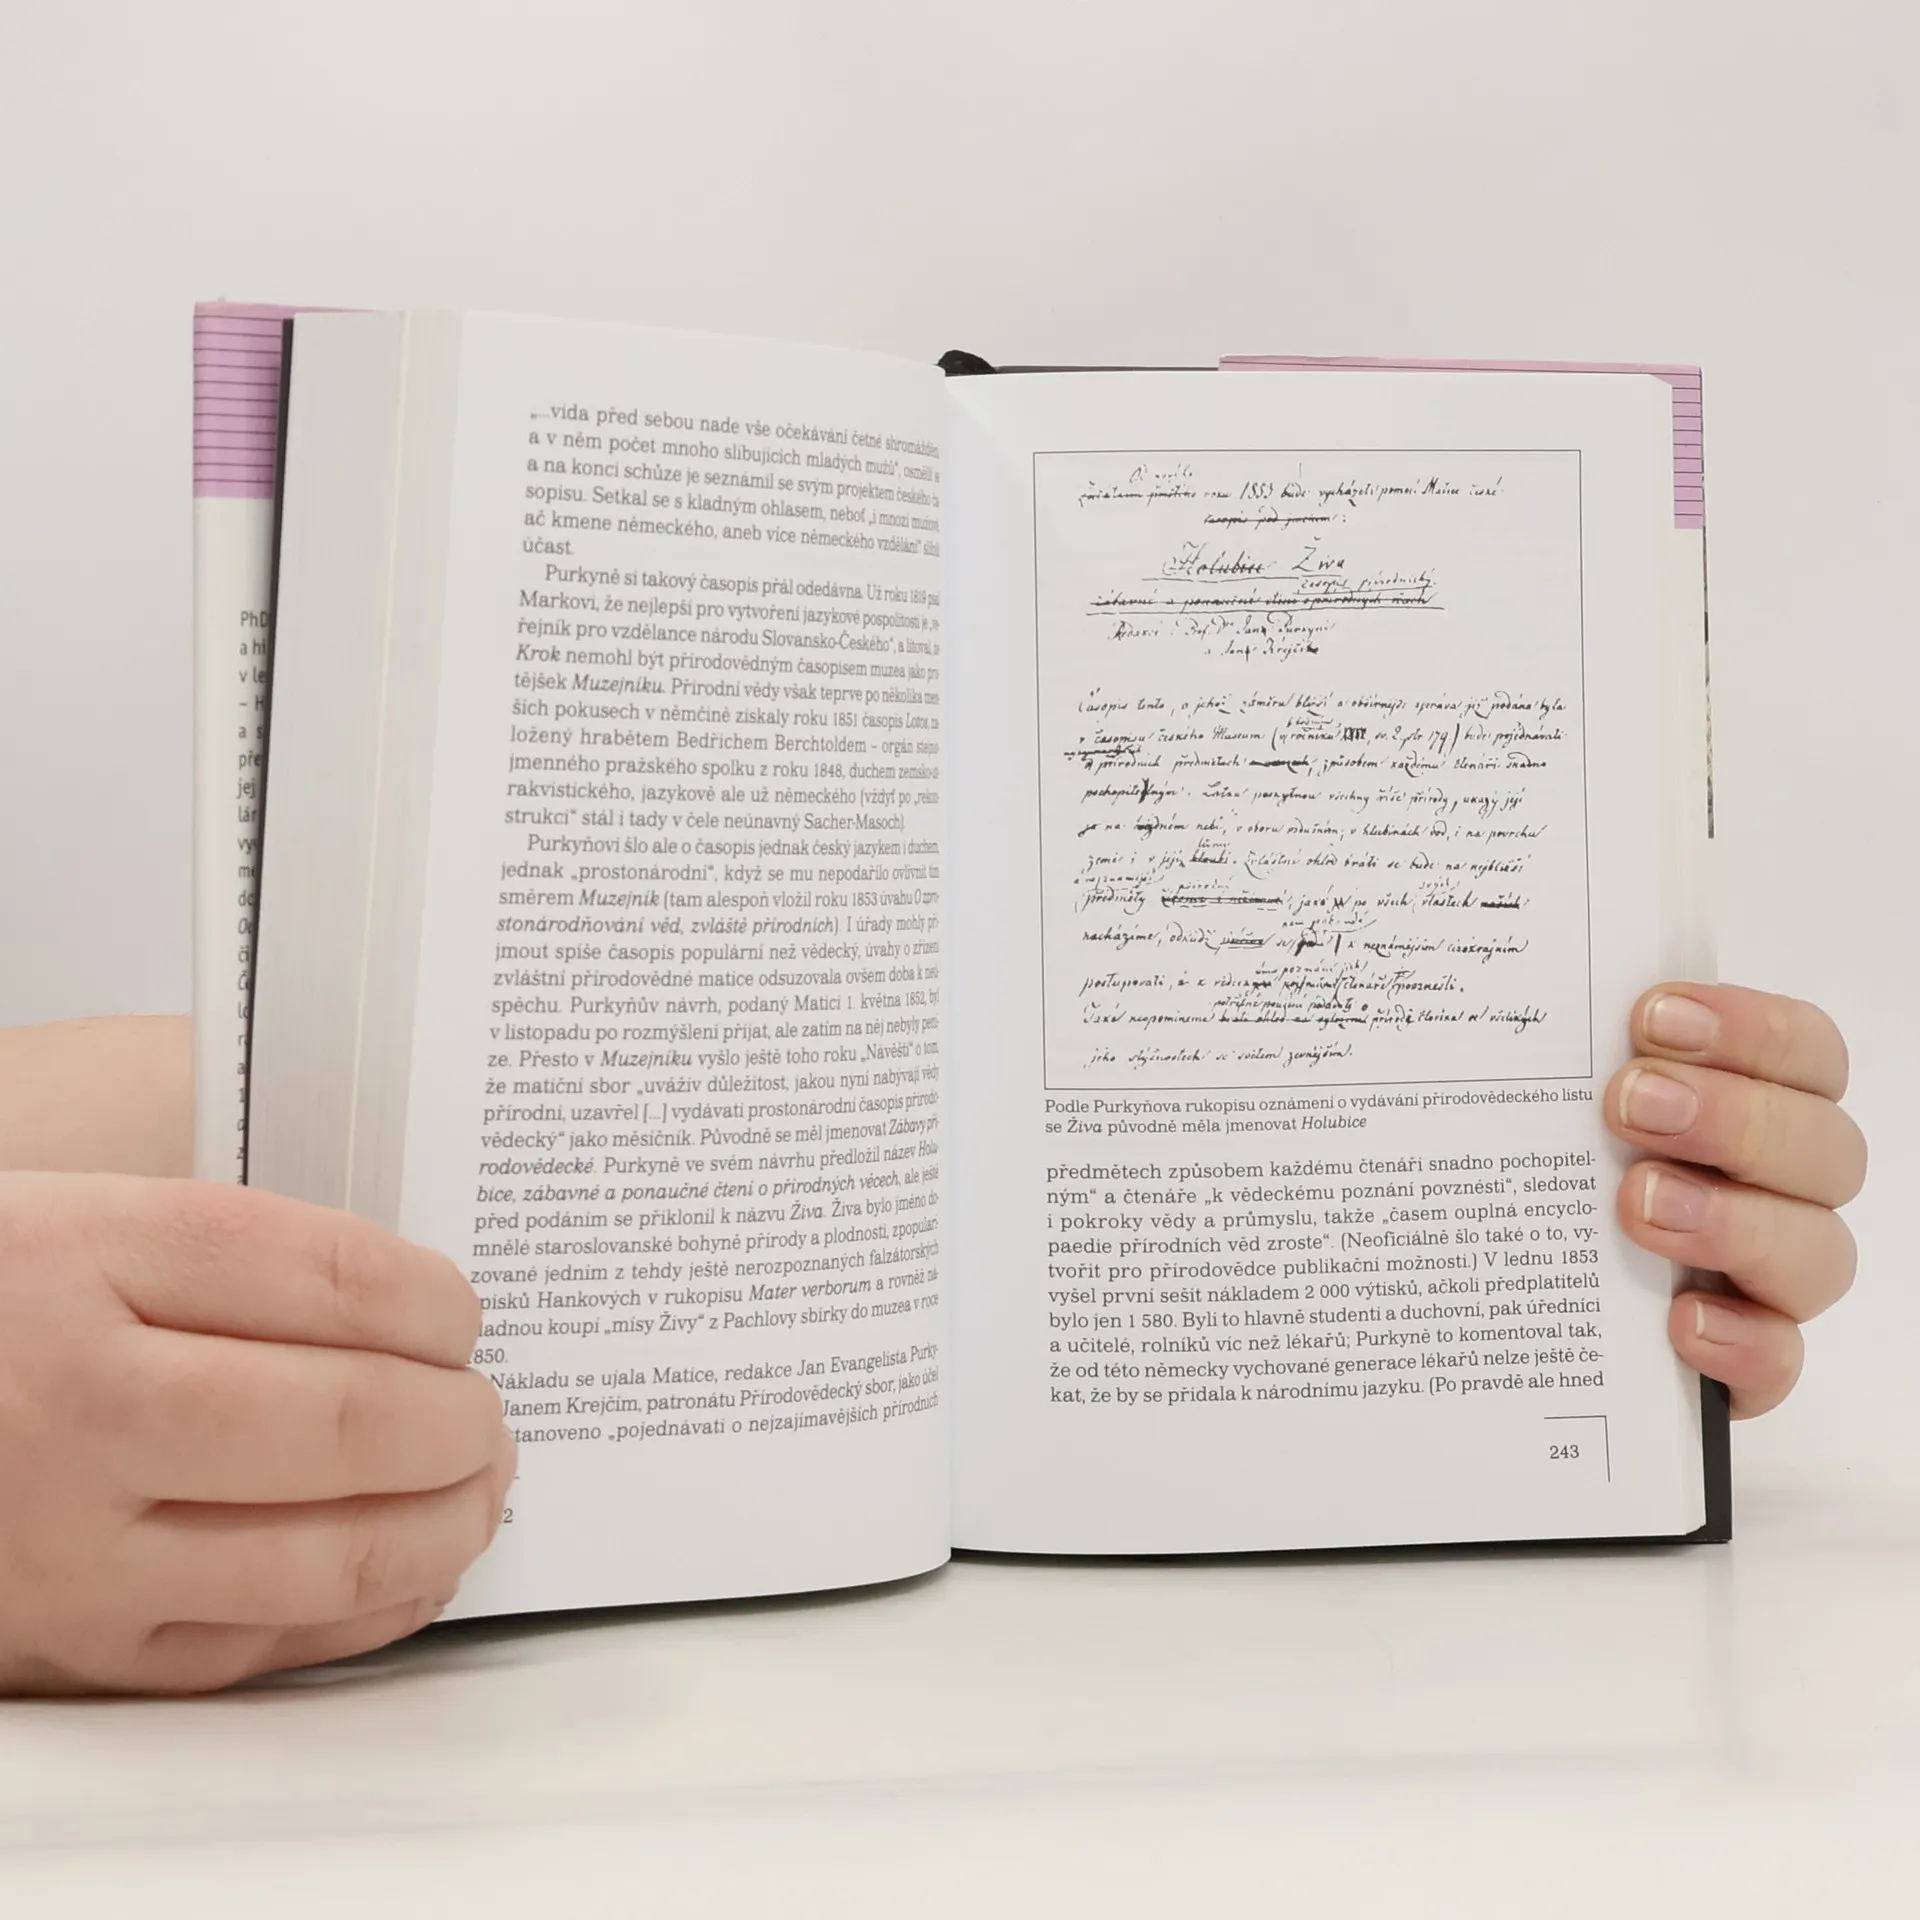 PhD
a hi
v le
– H
a s
pře
jej
lár
„...vida před sebou nade vše očekávání četné shromáždění
a v něm počet mnoho slibujících mladých mužů“, osmělil
a na konci schůze je seznámil se svým projektem českého ča
sopisu. Setkal se s kladným ohlasem, neboť „i mnozí mužové
ač kmene německého, aneb více německého vzdělání“ slíbili
účast.
Purkyně si takový časopis přál odedávna. Už roku 1819 psal
Markovi, že nejlepší pro vytvoření jazykové pospolitosti je
řejník pro vzdělance národu Slovansko-Českého“, a litoval, že
Krok nemohl být přírodovědným časopisem muzea jako pro
tějšek Muzejníku. Přírodní vědy však teprve po několika men
ších pokusech v němčině získaly roku 1851 časopis Lotos, za
ložený hrabětem Bedřichem Berchtoldem – orgán stejno
jmenného pražského spolku z roku 1848, duchem zemsko-u
rakvistického, jazykově ale už německého (vždyť po „rekon
strukci“ stál i tady v čele neúnavný Sacher-Masoch).
Purkyňovi šlo ale o časopis jednak český jazykem i duchem,
jednak „prostonárodní“, když se mu nepodařilo ovlivnit tím
směrem Muzejník (tam alespoň vložil roku 1853 úvahu O zpro
stonárodňování věd, zvláště přírodních). I úřady mohly při
jmout spíše časopis populární než vědecký, úvahy o zřízení
zvláštní přírodovědné matice odsuzovala ovšem doba k neú
spěchu. Purkyňův návrh, podaný Matici 1. května 1852, byl
v listopadu po rozmýšlení přijat, ale zatím na něj nebyly pení
ze. Přesto v Muzejníku vyšlo ještě toho roku „Návěští“ o tom,
že matiční sbor „uváživ důležitost, jakou nyní nabývají vědy
přírodní, uzavřel [...] vydávati prostonárodní časopis přírodo
vědecký“ jako měsíčník. Původně se měl jmenovat Zábavy pří-
rodovědecké. Purkyně ve svém návrhu předložil název Holu
bice, zábavné a ponaučné čtení o přírodných věcech, ale ještě
před podáním se přiklonil k názvu Živa. Živa bylo jméno do
mnělé staroslovanské bohyně přírody a plodnosti, zpopulari
zované jedním z tehdy ještě nerozpoznaných falzátorských
pisků Hankových v rukopisu Mater verborum a rovněž ná
ladnou koupí „mísy Živy“ z Pachlovy sbírky do muzea v roce
850.
Nákladu se ujala Matice, redakce Jan Evangelista Purky-
Janem Krejčím, patronátu Přírodovědecký sbor, jako účel
tanoveno „pojednávati o nejzajímavějších přírodních
2
Od nového
roku 1853 bude vycházeti pomocí Matice české
časopis pod jménem:
Holubice Živa
časopis přírodnický.
zábavné a ponaučné čtení o přírodných věcech
Redakcí Prof. Dra Jana Purkyně
a Jana Krejčího
Časopis tento, o jehož záměru bližší a obšírnější zpráva již podána byla
v časopisu českého Museum (sv. 2. str. 179.) bude pojednávati
o přírodních předmětech způsobem každému čtenáři snadno
pochopitelným. Látku poskytnou všechny říše přírody,
nebi, v oboru vzdušném, v hlubinách vod, i na povrchu
země i v její. Zvláštní ohled bráti se bude na nejbližší
předměty, jaké po všech vlastech
nacházíme, odkudž k neznámějším cizokrajným
postupovati, a k čtenáře povznésti.
Také neopomineme přírodě člověka ve všelikých
jeho se světem zevnějším.
Podle Purkyňova rukopisu oznámení o vydávání přírodovědeckého listu
se Živa původně měla jmenovat Holubice
předmětech způsobem každému čtenáři snadno pochopitel-
ným“ a čtenáře „k vědeckému poznání povznésti“, sledovat
i pokroky vědy a průmyslu, takže „časem ouplná encyclo-
paedie přírodních věd zroste“. (Neoficiálně šlo také o to, vy-
tvořit pro přírodovědce publikační možnosti.) V lednu 1853
vyšel první sešit nákladem 2 000 výtisků, ačkoli předplatitelů
bylo jen 1 580. Byli to hlavně studenti a duchovní, pak úředníci
a učitelé, rolníků víc než lékařů; Purkyně to komentoval tak,
že od této německy vychované generace lékařů nelze ještě če-
kat, že by se přidala k národnímu jazyku. (Po pravdě ale hned
243